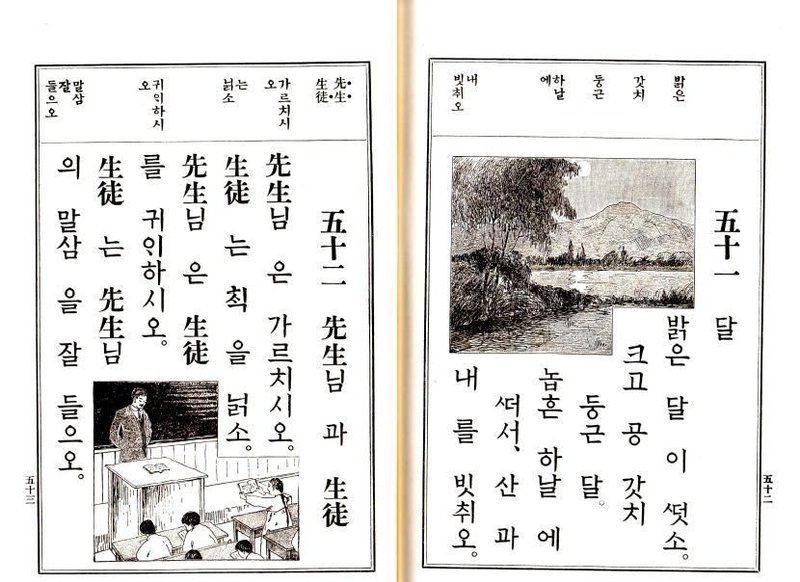 밝은
갓치
둥근
하날
에
내
빗취오
五十一 달
밝은 달 이 ᄯᅥᆺ소。
크고 공 갓치
둥근 달。
놉흔 하날 에
ᄯᅥ서、산 과
내 를 빗취오。
五十二
先生・
生徒・
가르치시
오
는
넑소
귀ᄋᆡ하시
오
말삼
잘
들으오
五十二 先生님 과 生徒
先生님 은 가르치시오。
生徒 는 ᄎᆡᆨ 을 넑소。
先生님 은 生徒
를 귀ᄋᆡ하시오。
生徒 는 先生님
의 말삼 을 잘 들으오。
五十三